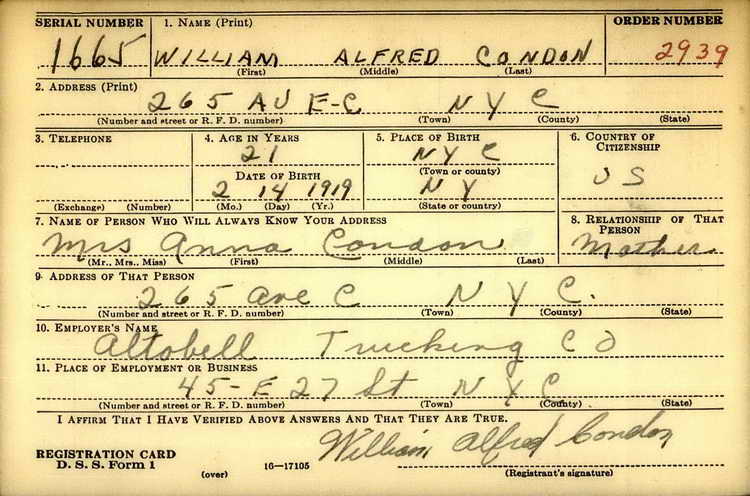 SERIAL NUMBER 1. NAME (Print) ORDER NUMBER
1665 WILLIAM ALFRED CONDON 2939
(First) (Middle) (Last)
2. ADDRESS (Print)
265 AV E-C N Y C
(Number and street or R. F. D. number) (Town) (County) (State)
3. TELEPHONE 4. AGE IN YEARS 5. PLACE OF BIRTH 6. COUNTRY OF CITIZENSHIP
21 N Y C
(Town or county)
DATE OF BIRTH U S
2 14 1919 N Y
(Exchange) (Number) (Mo.) (Day) (Yr.) (State or country)
7. NAME OF PERSON WHO WILL ALWAYS KNOW YOUR ADDRESS 8. RELATIONSHIP OF THAT PERSON
Mrs Anna Condon Mother
(Mr., Mrs., Miss) (First) (Middle) (Last)
9. ADDRESS OF THAT PERSON
265 Ave C N Y C.
(Number and street or R. F. D. number) (Town) (County) (State)
10. EMPLOYER'S NAME
Altobell Trucking CO
11. PLACE OF EMPLOYMENT OR BUSINESS
45-E 27 St N Y C
(Number and street or R. F. D. number) (Town) (County) (State)
I AFFIRM THAT I HAVE VERIFIED ABOVE ANSWERS AND THAT THEY ARE TRUE.
William Alfred Condon
REGISTRATION CARD
D. S. S. Form 1 (over) 16-17105 (Registrant's signature)